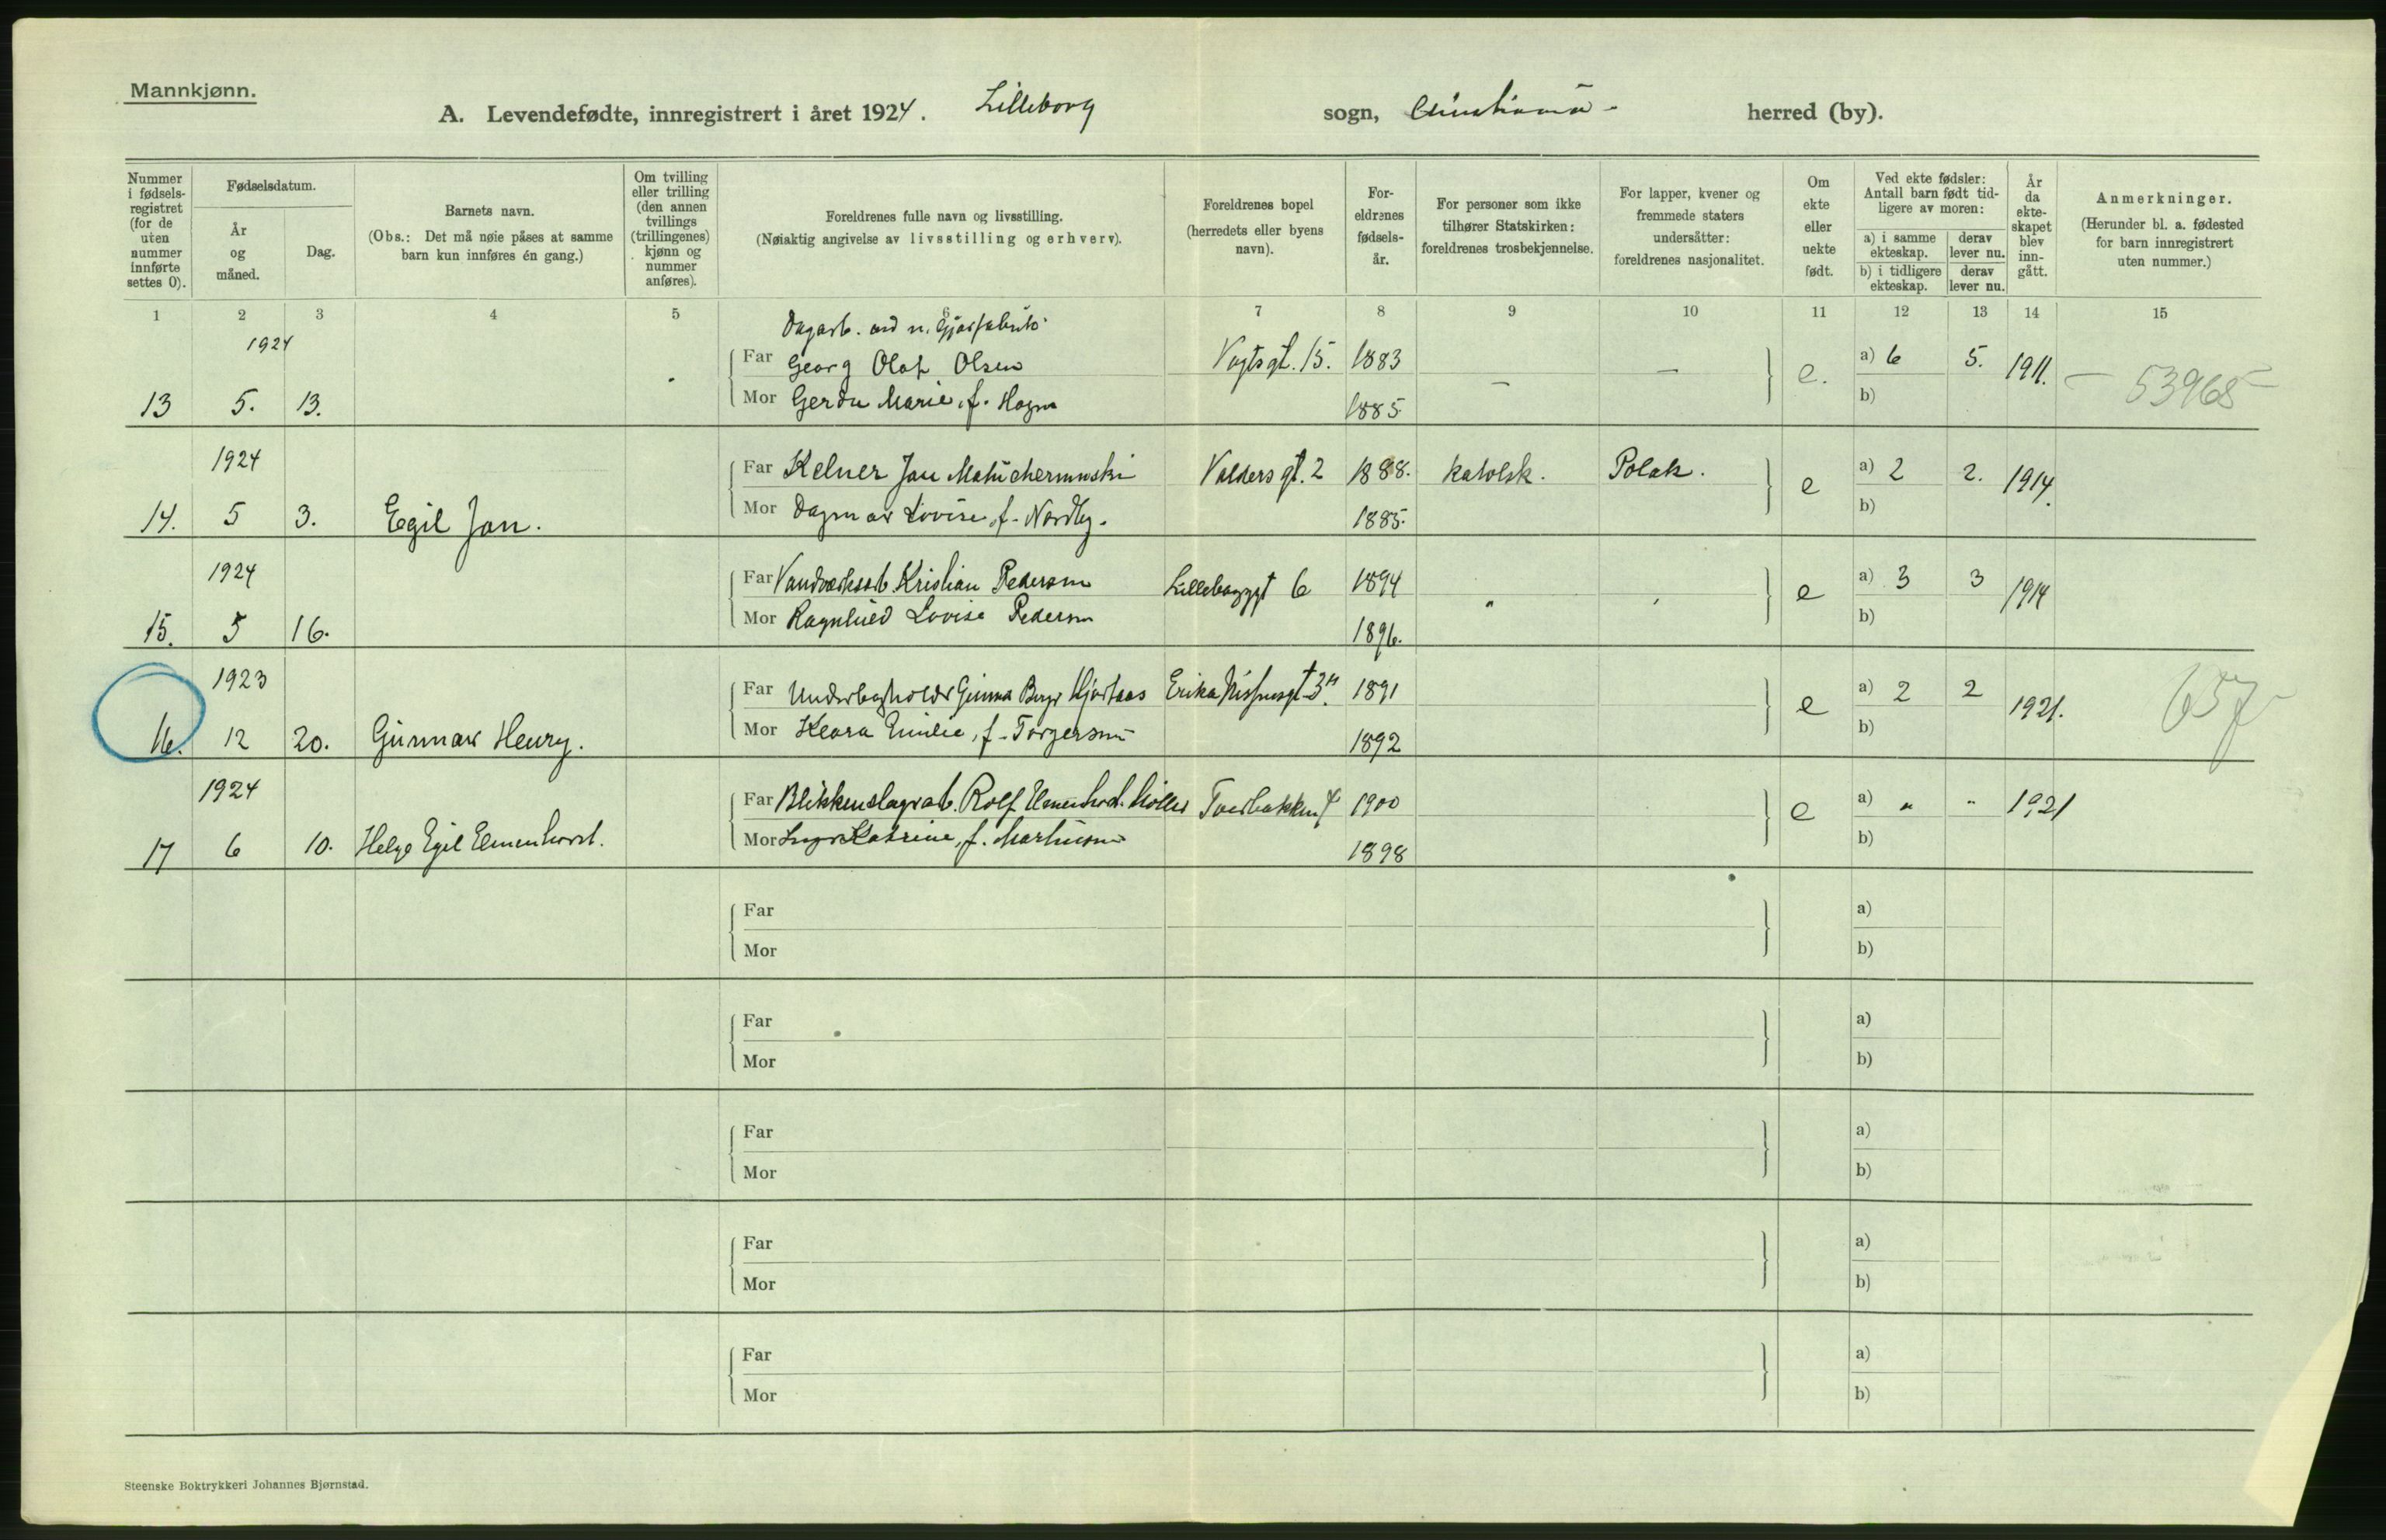 Mannkjønn.
A. Levendefødte, innregistrert i året 1924. Lilleborg sogn, Christiania herred (by).
Nummer i fødsels-registret (for de uten nummer innførte settes 0).
Fødselsdatum.
År og måned.
Dag.
Barnets navn.
(Obs.: Det må nøie påses at samme barn kun innføres én gang.)
Om tvilling eller trilling (den annen tvillings (trillingenes) kjønn og nummer anføres).
Foreldrenes fulle navn og livsstilling.
(Nøiaktig angivelse av livsstilling og erhverv).
Foreldrenes bopel (herredets eller byens navn).
For-eldrenes fødsels-år.
For personer som ikke tilhører Statskirken: foreldrenes trosbekjennelse.
For lapper, kvener og fremmede staters undersåtter: foreldrenes nasjonalitet.
Om ekte eller uekte født.
Ved ekte fødsler: Antall barn født tid-ligere av moren:
a) i samme ekteskap. derav lever nu.
b) i tidligere ekteskap. derav lever nu.
År da ekte-skapet blev inn-gått.
Anmerkninger.
(Herunder bl. a. fødested for barn innregistrert uten nummer.)
1 2 3 4 5 6 7 8 9 10 11 12 13 14 15
1924 Dagarb.
Far Georg Olaf Olsen Vogtsgt. 15. 1883 — — e. a) 6 5. 1911. — 53968 —
13 5. 13. Mor Gerda Marie, f. Hagen 1885. b)
1924 Far Kelner Jan Valdersgt. 2 1888. katolsk. Polak. e a) 2 2. 1914.
14. 5 3. Egil Jan. Mor Dagmar Lovise, f. Nordby. 1885. b)
1924 Far Kristian Pedersen 6 1894 " " e a) 3 3 1914
15. 5 16. Mor Ragnhild Lovise Pedersen 1896. b)
1923 Far 1891 e a) 2 2 1921. 657
16. 12 20. Gunnar Henry. Mor Klara Emilie, f. Torgersen 1892 b)
1924 Far Rolf Elmenhorst Møller 1900 e a) " " 1921
17 6 10. Helge Egil Elmenhorst. Mor Katrine, f. Martinsen 1898 b)
Far a)
Mor b)
Far a)
Mor b)
Far a)
Mor b)
Far a)
Mor b)
Far a)
Mor b)
Steenske Boktrykkeri Johannes Bjørnstad.